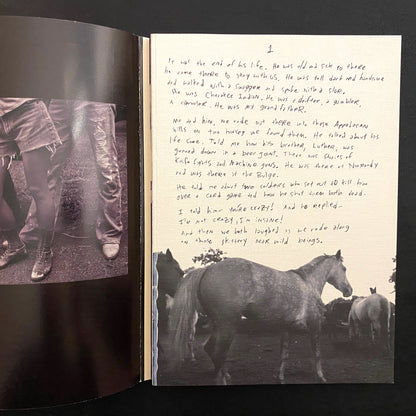 1
It was the end of his life. He was old and sick so there
he came there to stay with us. He was tall dark and handsome
and walked with a swagger and spoke with a slur.
He was Cherokee Indian. He was a drifter, a gambler,
a carouser. He was my grandfather.
Me and him, we rode out there into those Appalachian
hills on two horses we found there. He talked about his
life some. Told me how his brother, Luther, was
gunned down in a beer joint. There was stories of
knife fights and machine guns. He was there at Normandy
and was there at the Bulge.
He told me about two soldiers who set out to kill him
over a card game and how he shot them both dead.
I told him you're crazy! And he replied-
I'm not crazy, I'm insane!
And then we both laughed as we rode along
on those skittery near wild beings.